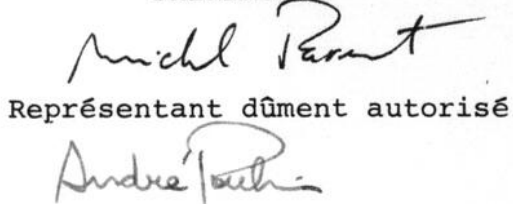 Michel Parent
Représentant dûment autorisé
André